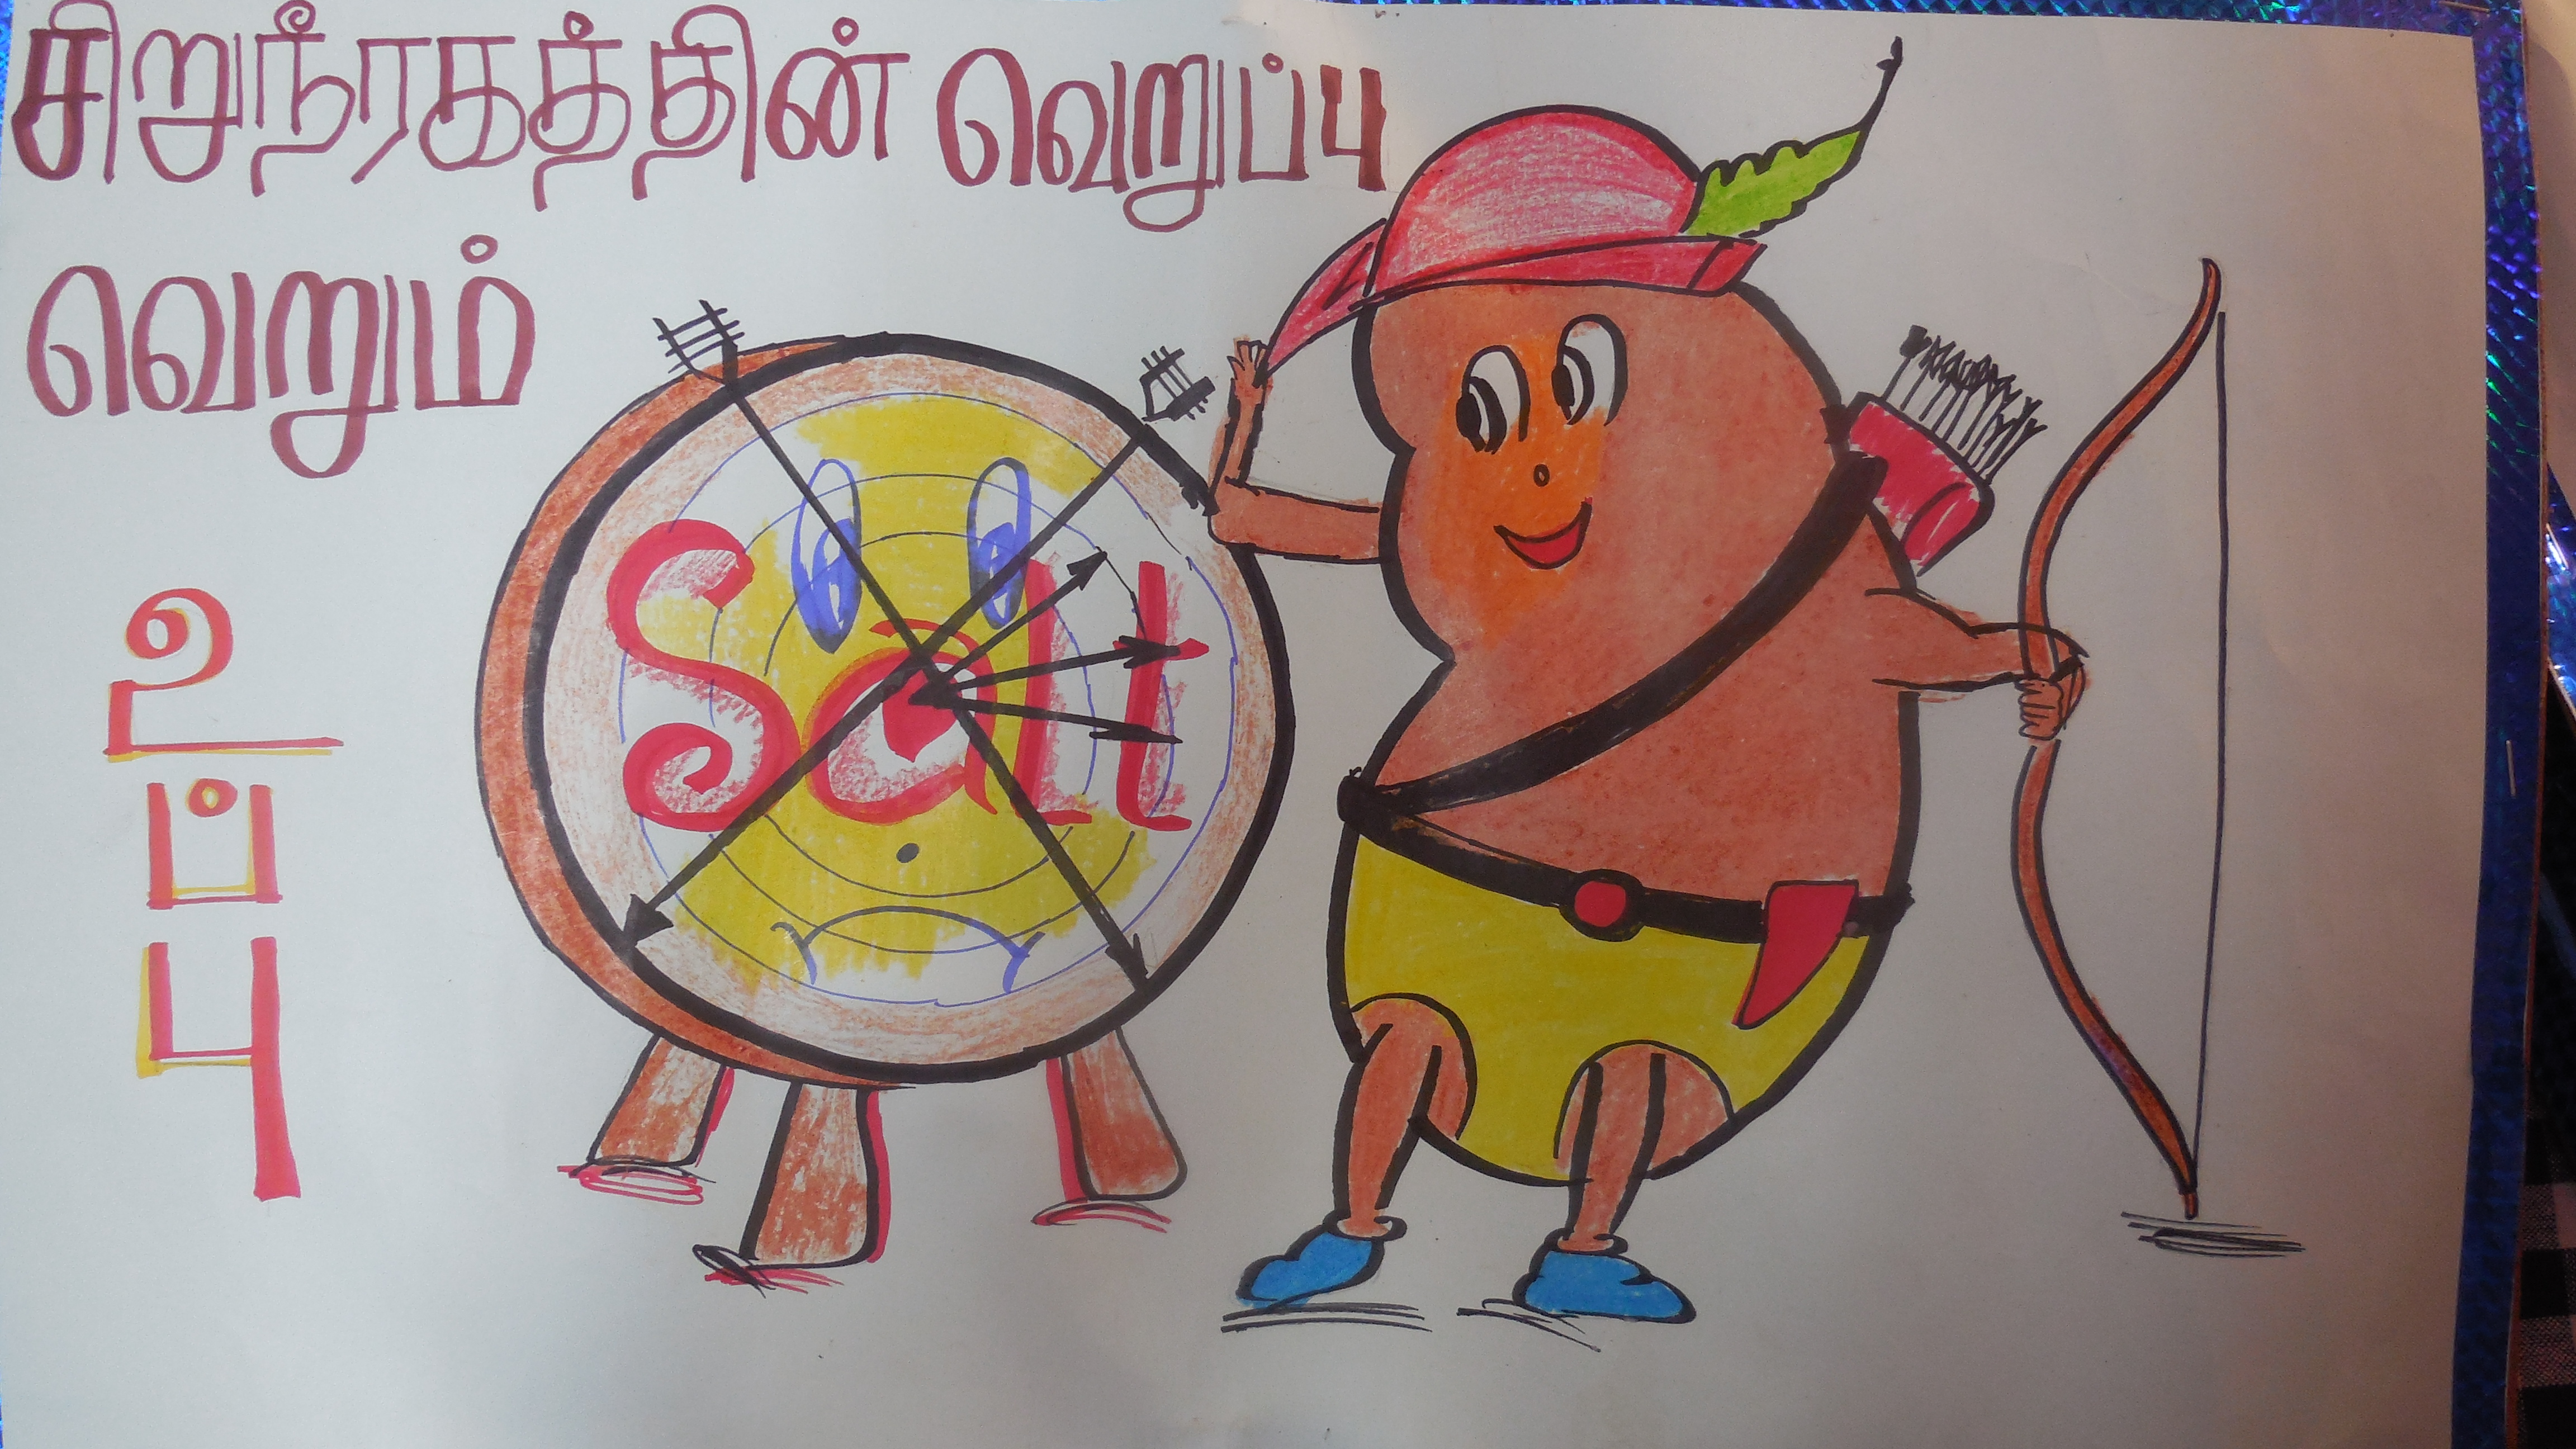 சிறுநீரகத்தின் வெறுப்பு
வெறும்
உ
ப்
பு
Salt